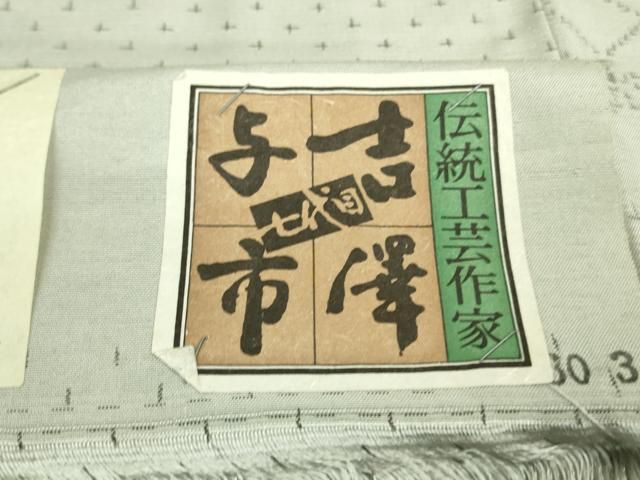 伝統工芸作家
吉澤
与市
七代目
30 3